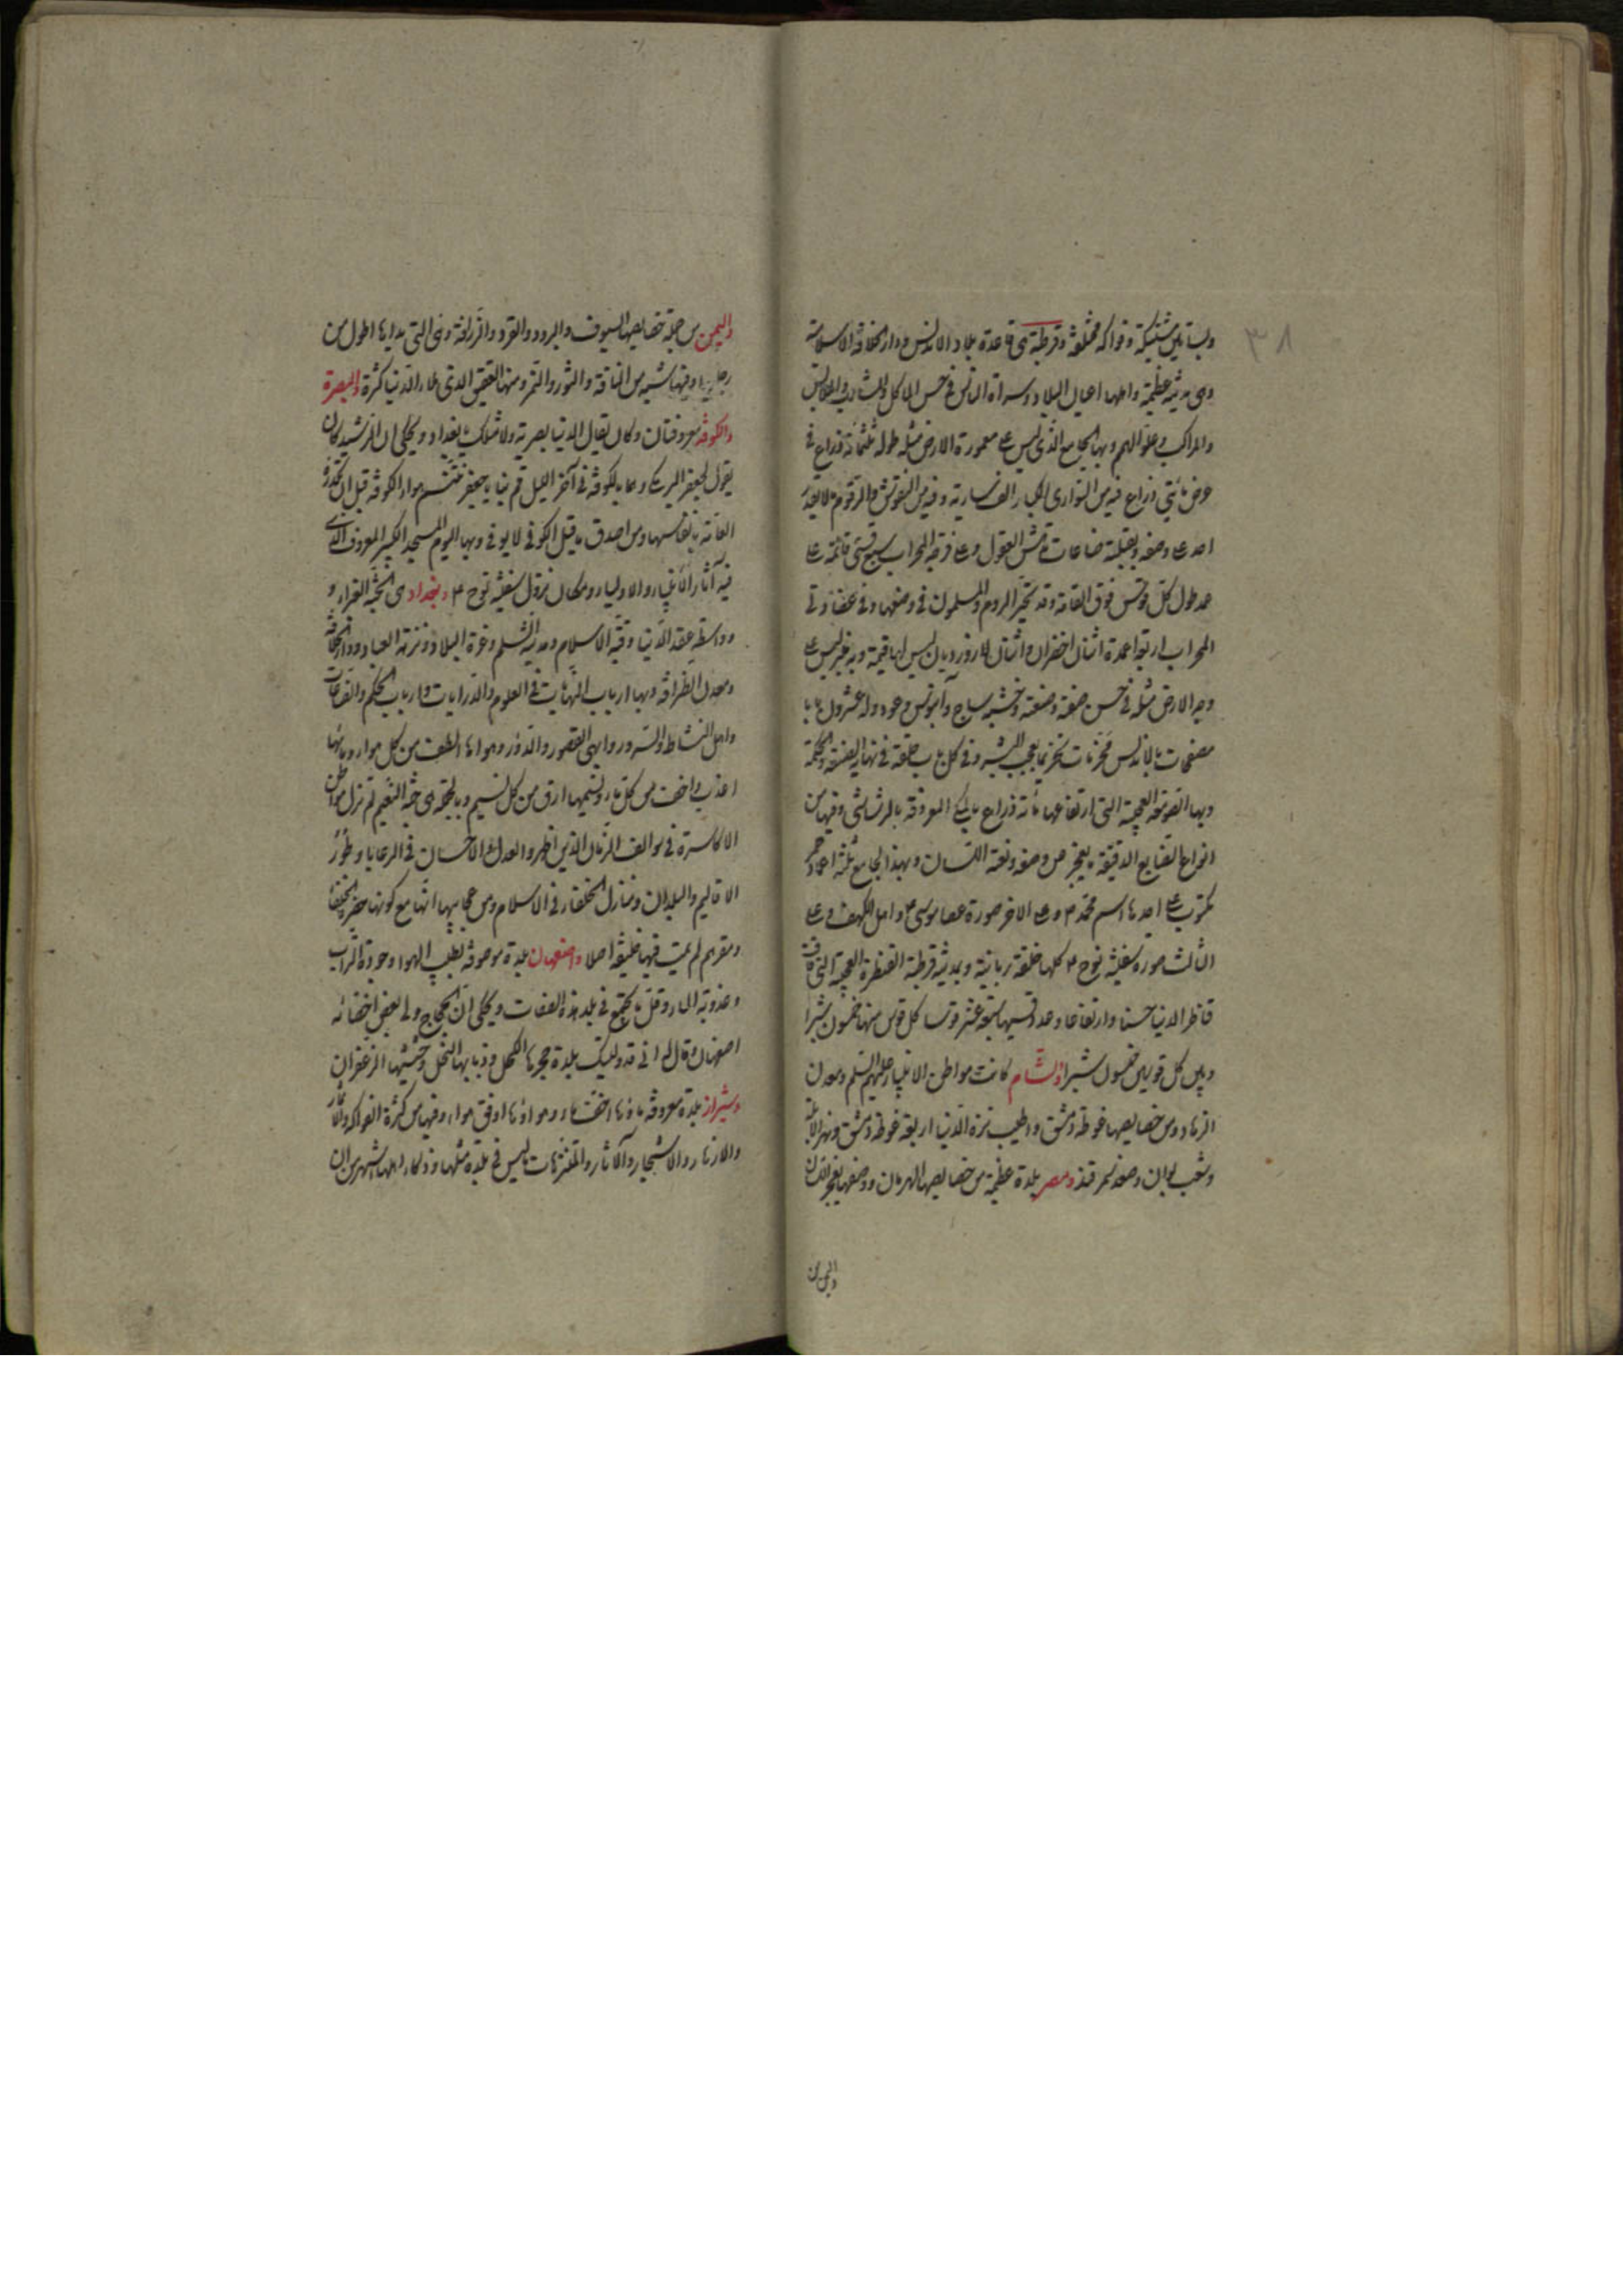 ٣٨
وبساتين مشتبكة وفواكه مختلفة وقرطبة هى قاعدة بلاد الاندلس ودار الخلافة الاسلامية
وهى مدينة عظيمة واهلها اعيان البلاد وسراة الناس فى حسن المآكل والمشارب والملابس
والمراكب وعلو الهمم وبها الجامع الذى ليس فى معمورة الارض مثله طوله ثلثمائة ذراع فى
عرض مائتى ذراع فيه من السوارى الكبار الف سارية وفيه من النقوش والرقوم ما لا يقدر
احد على وصفه وبقبلته صناعات تدهش العقول وعلى فرجة المحراب سبع قسى قائمة على
عمد طول كل قوس فوق القامة وقد تحير الروم والمسلمون فى وصفها وفى عضادتى
المحراب اربع اعمدة اثنان اخضران واثنان لازورديان ليس لها قيمة وبه منبر ليس على
وجه الارض مثله فى حسن صنعة وصنعته وخشبه ساج وآبنوس وعود وله عشرون بابا
مصفحات بالنحاس مخرمات تخريما يعجب البشر وفى كل باب حلقة فى نهاية الصنعة والحكمة
وبها الصومعة العجيبة التى ارتفاعها مائة ذراع بالمكى المعروفة بالرشاشى وفيها من
انواع الصنايع الدقيقة ما يعجز عن وصفه ونعته اللسان وبهذا الجامع ثلثة اعمدة حمر
مكتوب على احدها اسم محمد ٤م وعلى الاخر صورة عصا موسى ٤م واهل الكهف وعلى
الثالث صورة سفينة نوح ٤م كلها خلقة ربانية وبمدينة قرطبة القنطرة العجيبة التى فاقت
قناطر الدنيا حسنا وارتفاعا وعدد قسيها سبعة عشر قوسا كل قوس منها خمسون شبرا
وبين كل قوسين خمسون شبرا والشام كانت مواطن الانبياء عليهم السلم ومعدن
الزهاد ومن خصايصها غوطة دمشق واطيب نزه الدنيا اربعة غوطة دمشق ونهر الابلة
وشعب بوان وصغد سمرقند ومصر بلدة عظيمة من خصايصها الهرمان ووصفها يعجز اللسان
واليمن من
واليمن من جملة خصايصها السيوف والبرود والقرود والزرافة وهى التى يداها اطول من
رجليها وفيها شبه من الناقة والثور والنمر ومنها العقيق الذى ملاء الدنيا كثرة والبصرة
والكوفة معروفتان وكان يقال الدنيا بصرية ولا مثلك يا بغداد ويحكى ان الرشيد كان
يقول لجعفر البرمكى وهما بالكوفة فى آخر الليل قم بنا يا جعفر نتنسم هواء الكوفة قبل ان تكدره
العامة بانفاسها ومن اصدق ما قيل الكوفى لا يوفى وبها اليوم المسجد الكبير المعروف الذى
فيه آثار الانبياء والاولياء ومكان نزول سفينة نوح ٤م وبغداد هى الجنة الغراء و
وواسطة عقد الدنيا وقبة الاسلام ومدينة السلم وغرة البلاد ونزهة العباد ودار الخلافة
ومعدن الظرافة وبها ارباب النهايات فى العلوم والدرايات وارباب الحكم والصناعات
واهل النشاط والسرور وابهى القصور والدور وهواءها الطف من كل هواء وماؤها
اعذب واخف من كل ماء ونسيمها ارق من كل نسيم وبالجملة هى جنة النعيم لم تزل مواطن
الاكاسرة فى سوالف الزمان الذين اظهروا العدل والاحسان فى الرعايا وعمروا
الاقاليم والبلدان ومنازل الخلفاء فى الاسلام ومن عجايبها انها مع كونها حضرة الخلفاء
ومقرهم لم يمت فيها خليفة اصلا واصفهان بلدة موصوفة بطيب الهوا وجودة التراب
وعذوبة الماء وقل ما تجتمع فى بلد هذه الصفات ويحكى ان الحجاج ولى بعض اخصائه
اصفهان وقال له انى قد وليتك بلدة حجرها الكحل وذبابها النحل وحشيشها الزعفران
وشيراز بلدة معروفة ماؤها اخف ماء وهواؤها اوفق هواء وفيها من كثرة الفواكه والثمار
والازهار والاشجار والآثار والمتنزهات ما ليس فى بلدة مثلها وذكاء اهلها اشهر من ان